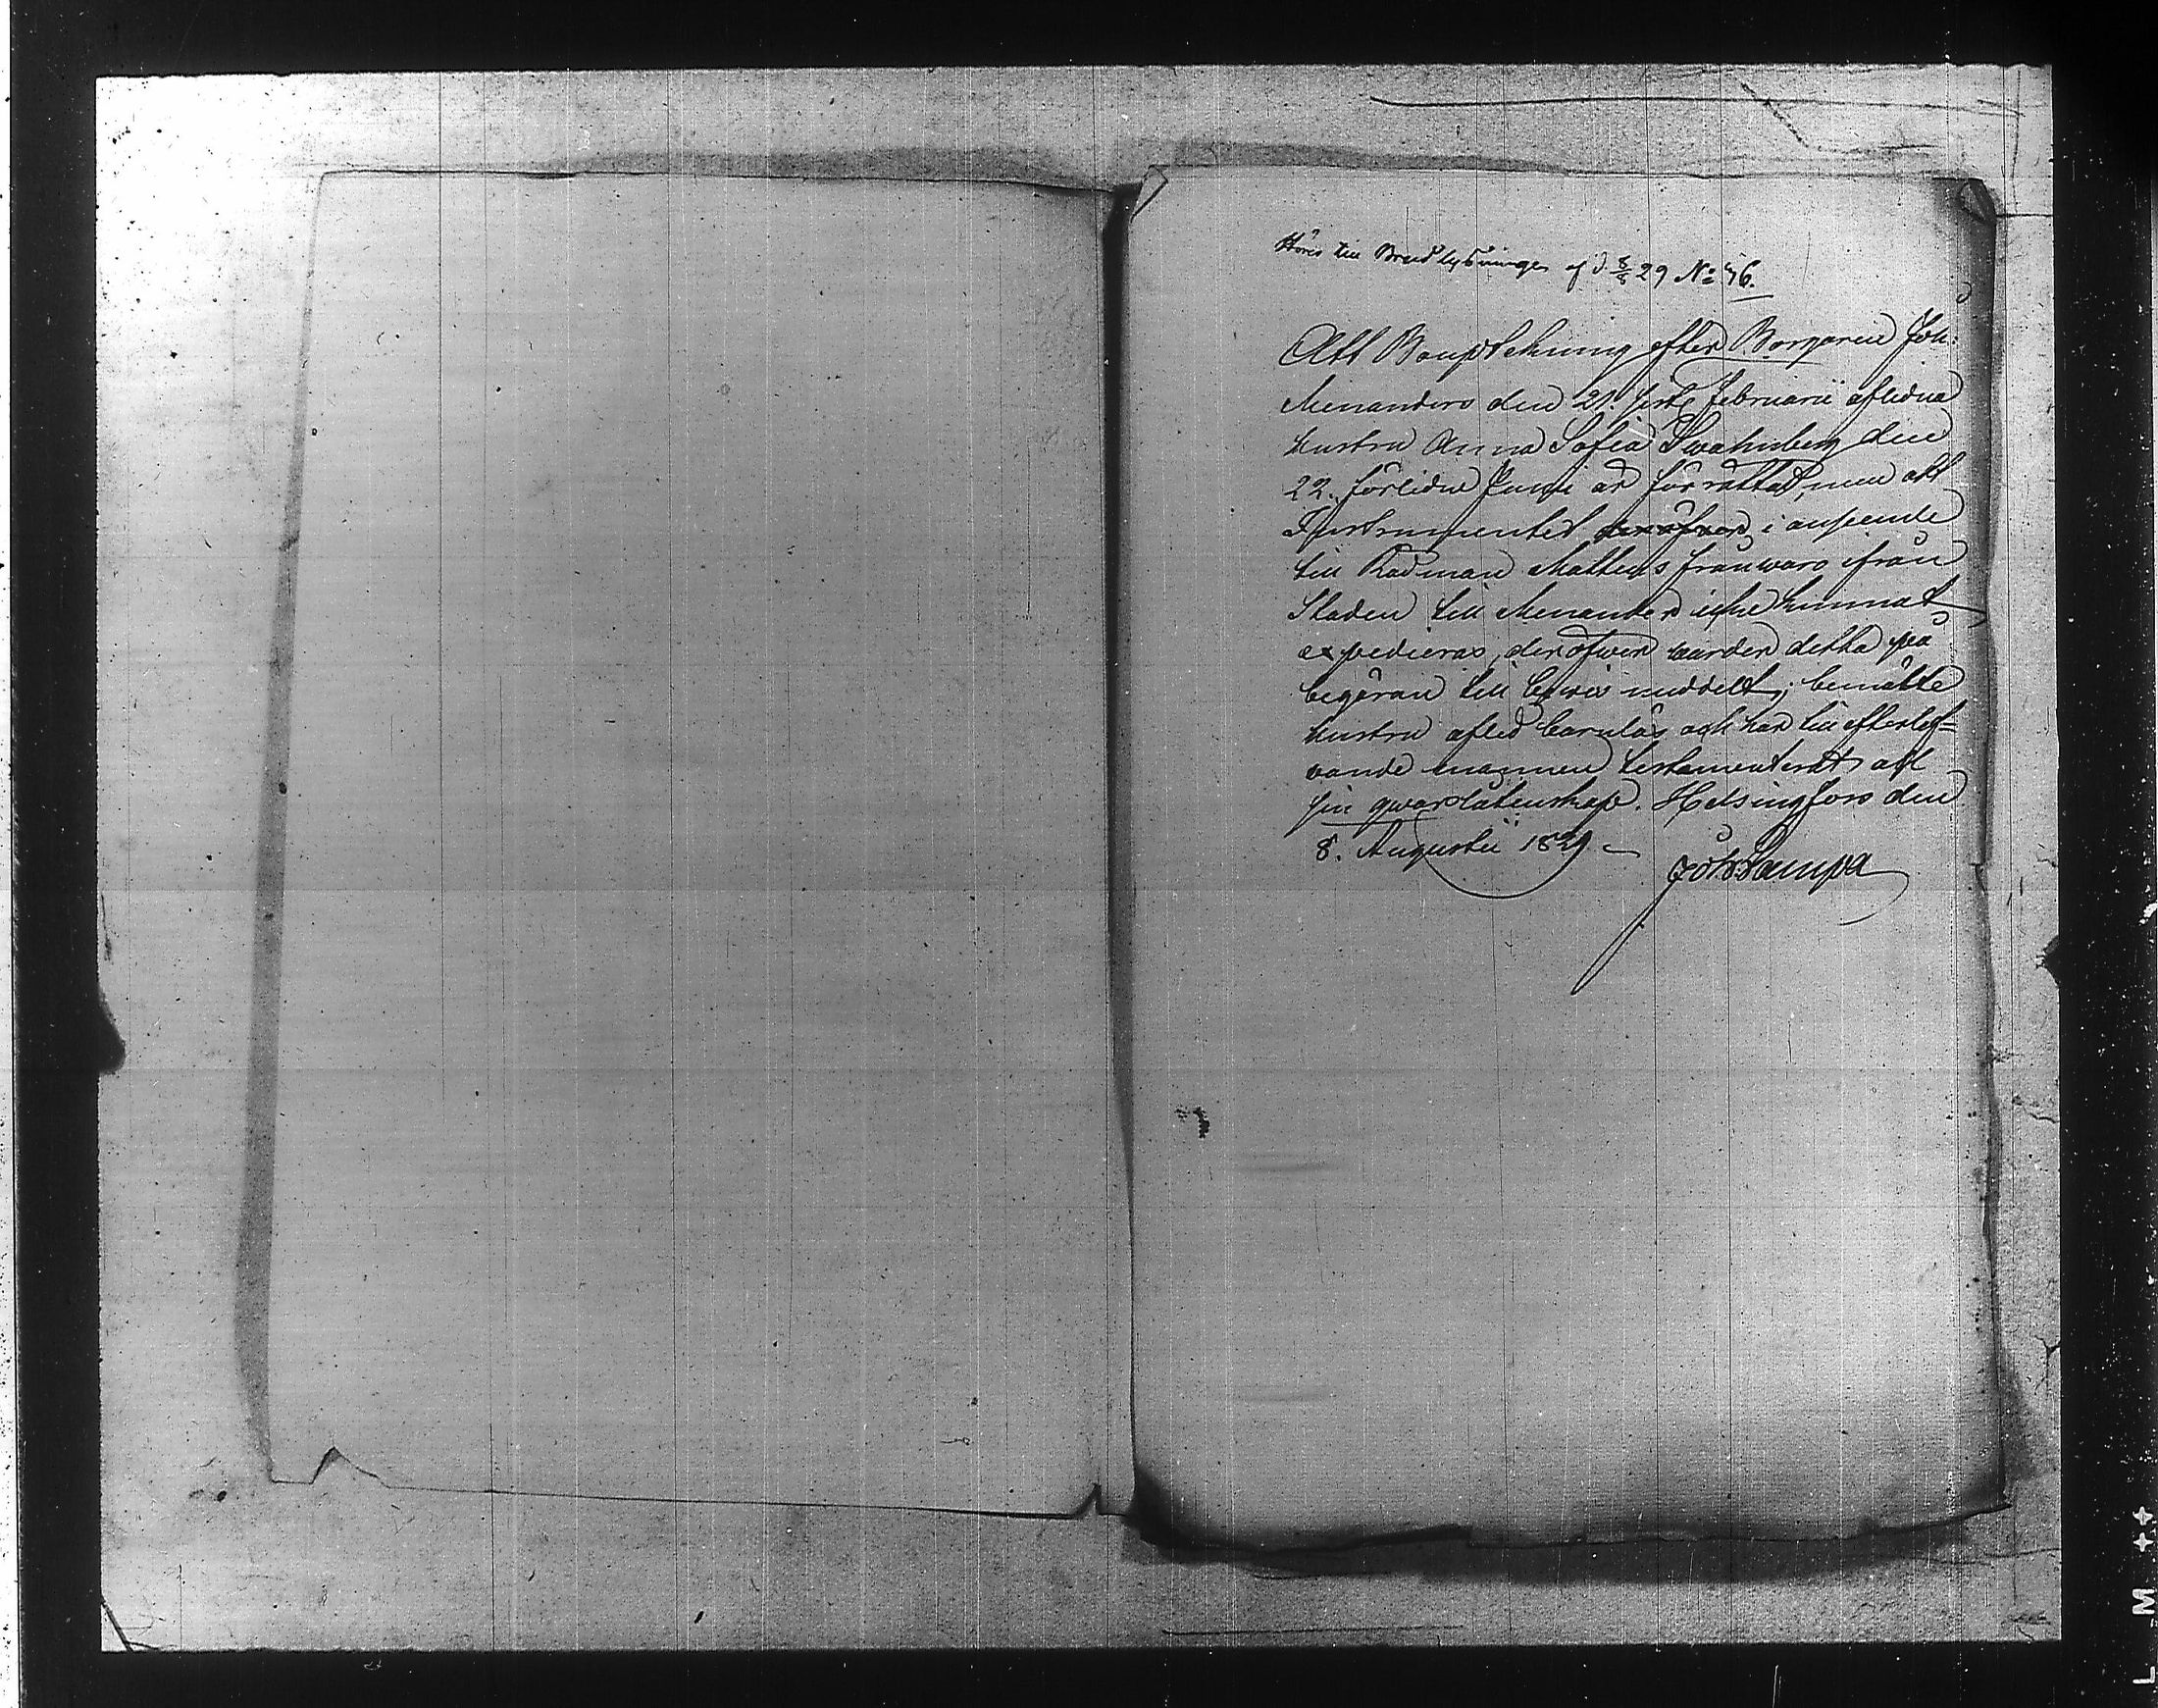 Hörer till Brudlysningen af d. 8/8 29 No 46.
Att Bouptekning efter Borgaren Joh:
Menanders den 21. sistl. Februarii aflidna
hustru Anna Sofia Swahnberg den
22. förlidne Junii är förrättad, men att
Instrumentet deröfver i anseende
till Rådman Mattens frånwaro ifrån
Staden till Menander icke hunnat
expedieras, deröfwer warder detta på
begäran till bewis meddelt; bemälte
hustru afled barnlös och har till efterlef=
vande mannen testamenterat all
sin qwarlåtenskap. Helsingfors den
8. Augustii 1829.
Joh Kampa
L M ++